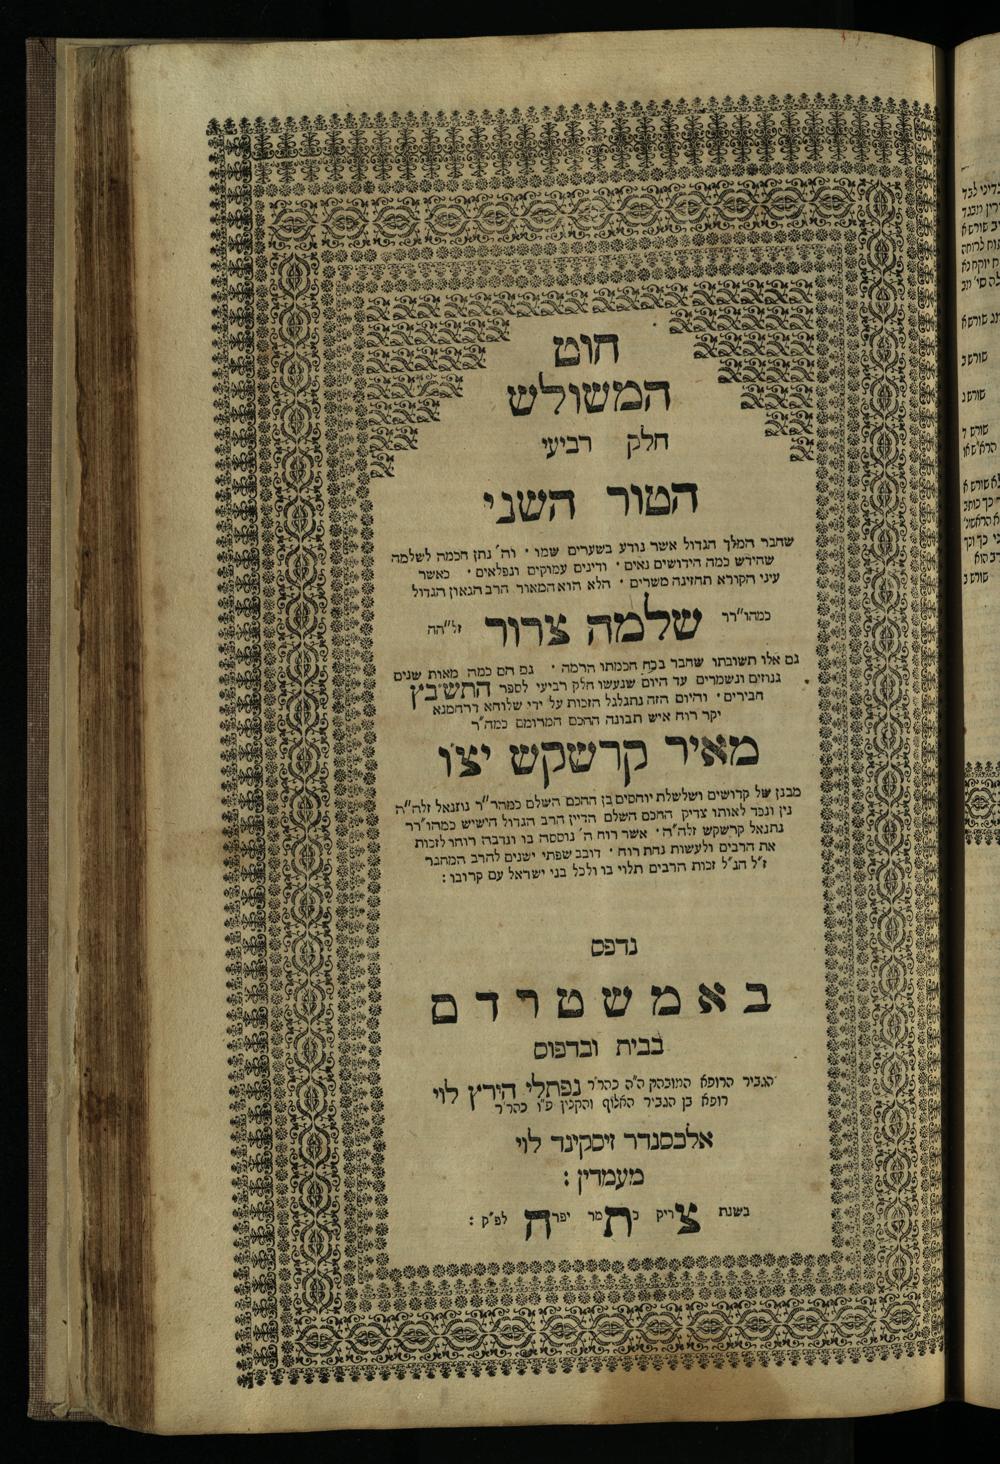 חוט
המשולש
חלק רביעי
הטור השני
שחבר המלך הגדול אשר נודע בשערים שמו · וה' נתן חכמה לשלמה
שחידש כמה חידושים נאים · ודינים עמוקים ונפלאים · כאשר
עיני הקורא תחזינה משרים · הלא הוא המאור הרב הגאון הגדול
כמהו"רר שלמה צרור זל"הה
גם אלו תשובתו שחבר בכח חכמתו הרמה · גם הם כמה מאות שנים
גנוזים ונשמרים עד היום שנעשו חלק רביעי לספר התש"בץ
חבירים · והיום הזה נתגלגל הזכות על ידי שלוחא דרחמנא
יקר רוח איש תבונה החכם המרומם כמה"ר
מאיר קרשקש יצ"ו
מבנן של קדושים ושלשלת יוחסים בן החכם השלם כמהר"ר נתנאל זלה"ה
נין ונכד לאותו צדיק החכם השלם הדיין הרב הגדול הישיש כמהו"רר
נתנאל קרשקש זלה"ה · אשר רוח ה' נוססה בו ונדבה רוחו לזכות
את הרבים ולעשות נחת רוח · דובב שפתי ישנים להרב המחבר
ז"ל הנ"ל זכות הרבים תלוי בו ולכל בני ישראל עם קרובו :
נדפס
באמשטרדם
בבית ובדפוס
הגביר הרופא המובהק ה"ה כהר"ר נפתלי הירץ לוי
רופא בן הגביר האלוף והקצין פ"ו כהר"ר
אלכסנדר זיסקינד לוי
מעמדין :
בשנת צדיק כתמר יפרה לפ"ק :
בדיני לבד
שורש ב
שורש נ
שורש ד